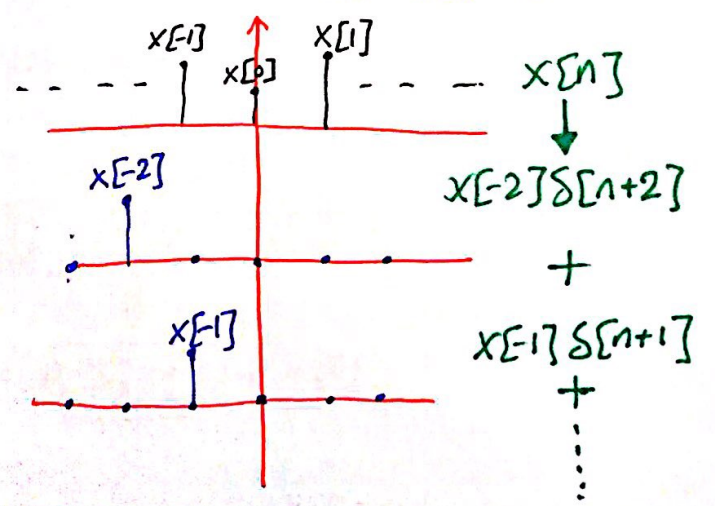 x[-1] x[0] x[1] x[n]
x[-2] x[-2]δ[n+2]
+
x[-1] x[-1]δ[n+1]
+